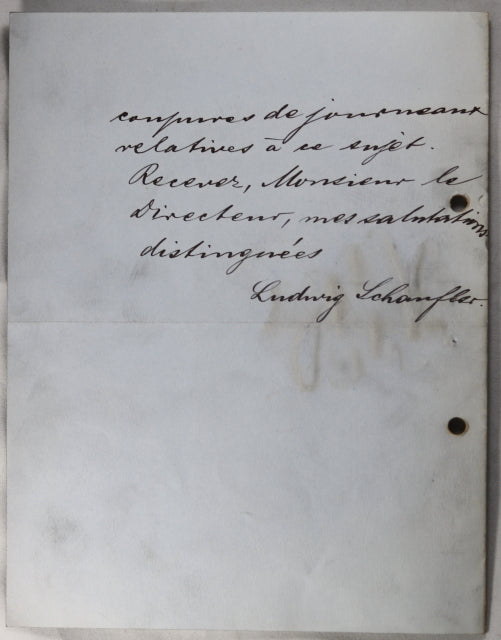 coupures de journeaux
relatives à ce sujet.
Recevez, Monsieur le
Directeur, mes salutations
distinguées
Ludwig Schaufler.